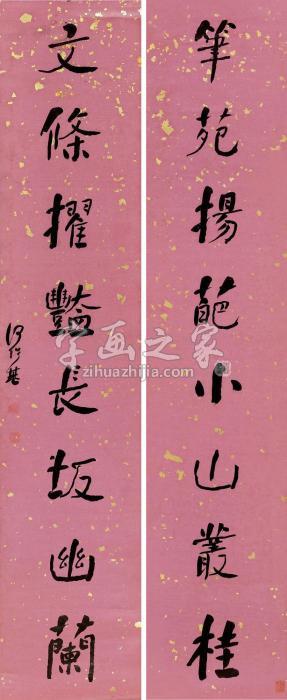 筆苑揚葩小山叢桂
文條擢豔長坂幽蘭
何紹基
字画之家
zihuazhijia.com